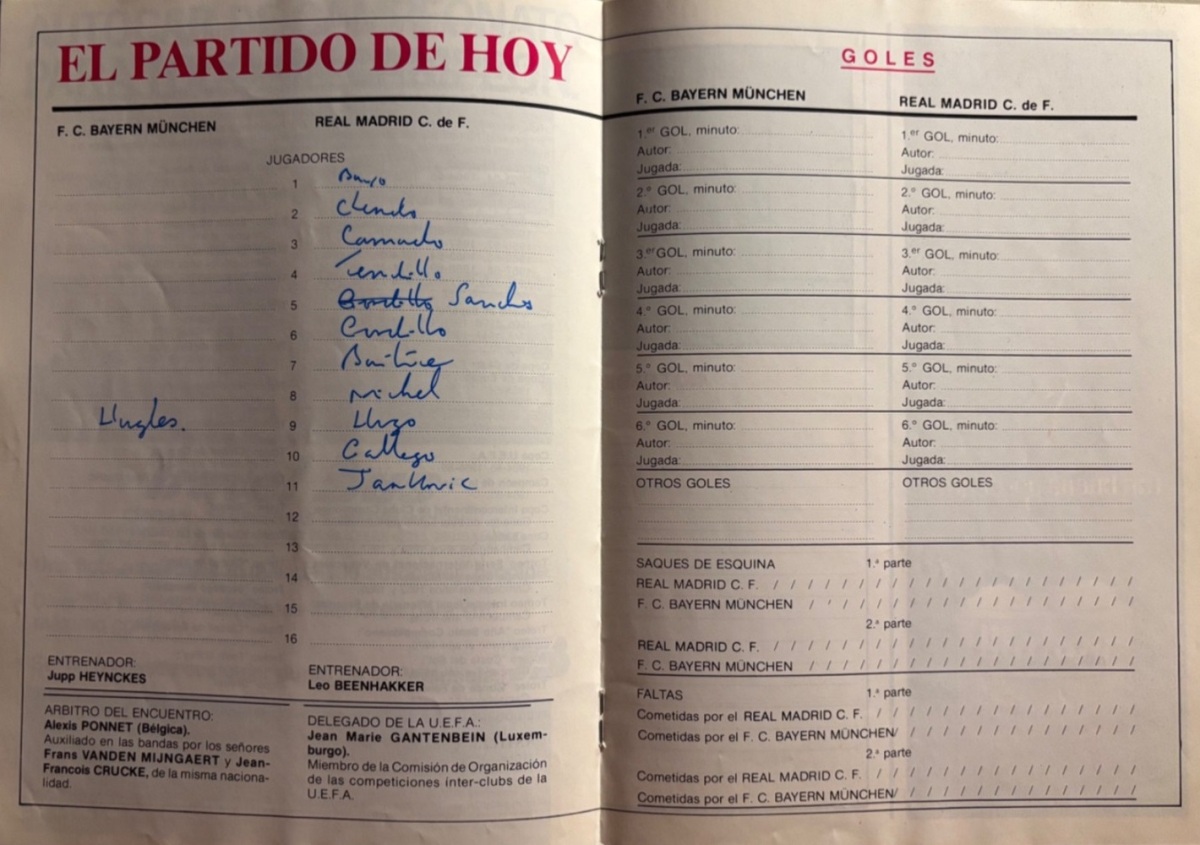 EL PARTIDO DE HOY
F. C. BAYERN MÜNCHEN
REAL MADRID C. de F.
JUGADORES
1 Buyo
2 Chendo
3 Camacho
4 Tendillo
5 Gordillo Sanchos
6 Gordillo
7 Butrag
8 Michel
Hughes. 9 Hugo
10 Gallego
11 Jankovic
12
13
14
15
16
ENTRENADOR:
Jupp HEYNCKES
ENTRENADOR:
Leo BEENHAKKER
ARBITRO DEL ENCUENTRO:
Alexis PONNET (Bélgica).
Auxiliado en las bandas por los señores
Frans VANDEN MIJNGAERT y Jean-
Francois CRUCKE, de la misma naciona-
lidad.
DELEGADO DE LA U.E.F.A.:
Jean Marie GANTENBEIN (Luxem-
burgo).
Miembro de la Comisión de Organización
de las competiciones inter-clubs de la
U.E.F.A.
GOLES
F. C. BAYERN MÜNCHEN
REAL MADRID C. de F.
1.er GOL, minuto:
Autor:
Jugada:
2.º GOL, minuto:
Autor:
Jugada:
3.er GOL, minuto:
Autor:
Jugada:
4.º GOL, minuto:
Autor:
Jugada:
5.º GOL, minuto:
Autor:
Jugada:
6.º GOL, minuto:
Autor:
Jugada:
OTROS GOLES
1.er GOL, minuto:
Autor:
Jugada:
2.º GOL, minuto:
Autor:
Jugada:
3.er GOL, minuto:
Autor:
Jugada:
4.º GOL, minuto:
Autor:
Jugada:
5.º GOL, minuto:
Autor:
Jugada:
6.º GOL, minuto:
Autor:
Jugada:
OTROS GOLES
SAQUES DE ESQUINA 1.ª parte
REAL MADRID C. F. / / / / / / / / / / / / / / / / / / / / /
F. C. BAYERN MÜNCHEN / / / / / / / / / / / / / / / / / / /
2.ª parte
REAL MADRID C. F. / / / / / / / / / / / / / / / / / / / / /
F. C. BAYERN MÜNCHEN / / / / / / / / / / / / / / / / / / /
FALTAS 1.ª parte
Cometidas por el REAL MADRID C. F. / / / / / / / / / / / / / / /
Cometidas por el F. C. BAYERN MÜNCHEN/ / / / / / / / / / / / / /
2.ª parte
Cometidas por el REAL MADRID C. F. / / / / / / / / / / / / / / /
Cometidas por el F. C. BAYERN MÜNCHEN/ / / / / / / / / / / / / /